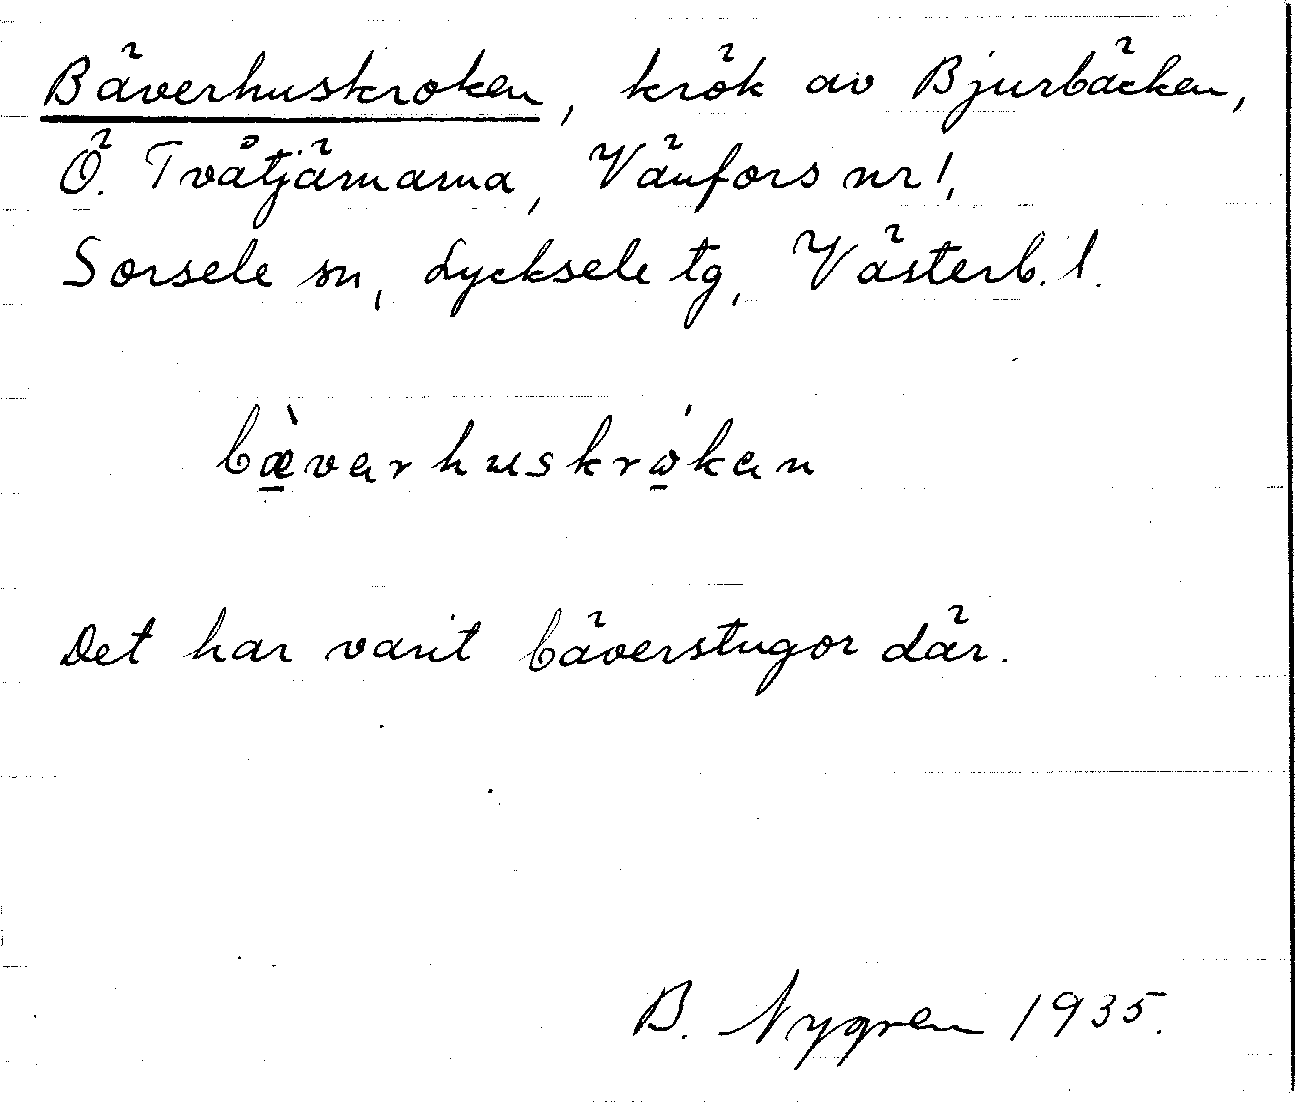 Bäverhuskroken, krök av Bjurbäcken,
Ö. Tvåtjärnarna, Vänfors nr 1,
Sorsele sn, Lycksele tg, Västerb. l.
bæ̀varhuskrókan
Det har varit bäverstugor där.
B. Nygren 1935.